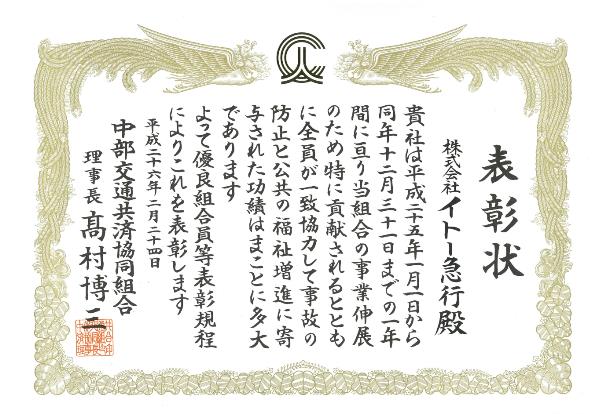 表彰状
株式会社イトー急行殿
貴社は平成二十五年一月一日から
同年十二月三十一日までの一年
間に亘り当組合の事業伸展
のため特に貢献されるととも
に全員が一致協力して事故の
防止と公共の福祉増進に寄
与された功績はまことに多大
であります
よって優良組合員等表彰規程
によりこれを表彰します
平成二十六年二月二十四日
中部交通共済協同組合
理事長 髙村博三